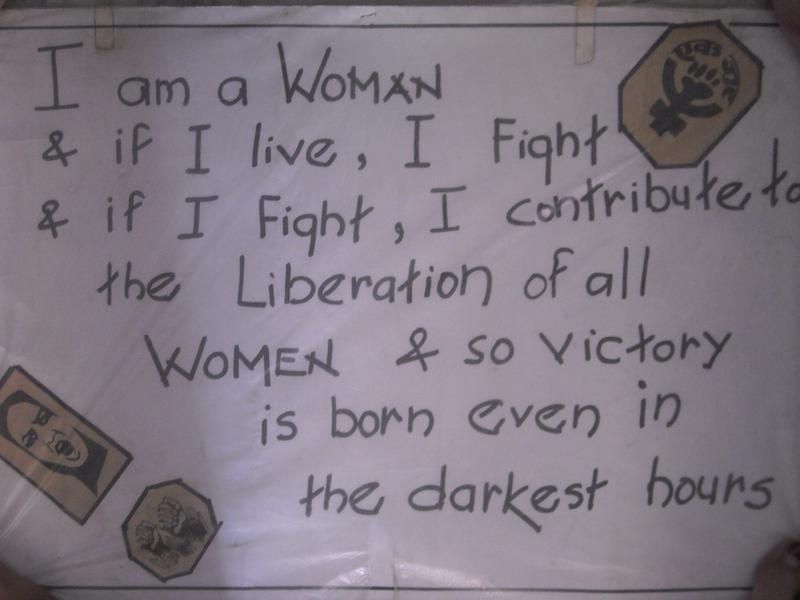 I am a WOMAN
& if I live, I Fight
& if I Fight, I contribute to
the Liberation of all
WOMEN & so victory
is born even in
the darkest hours